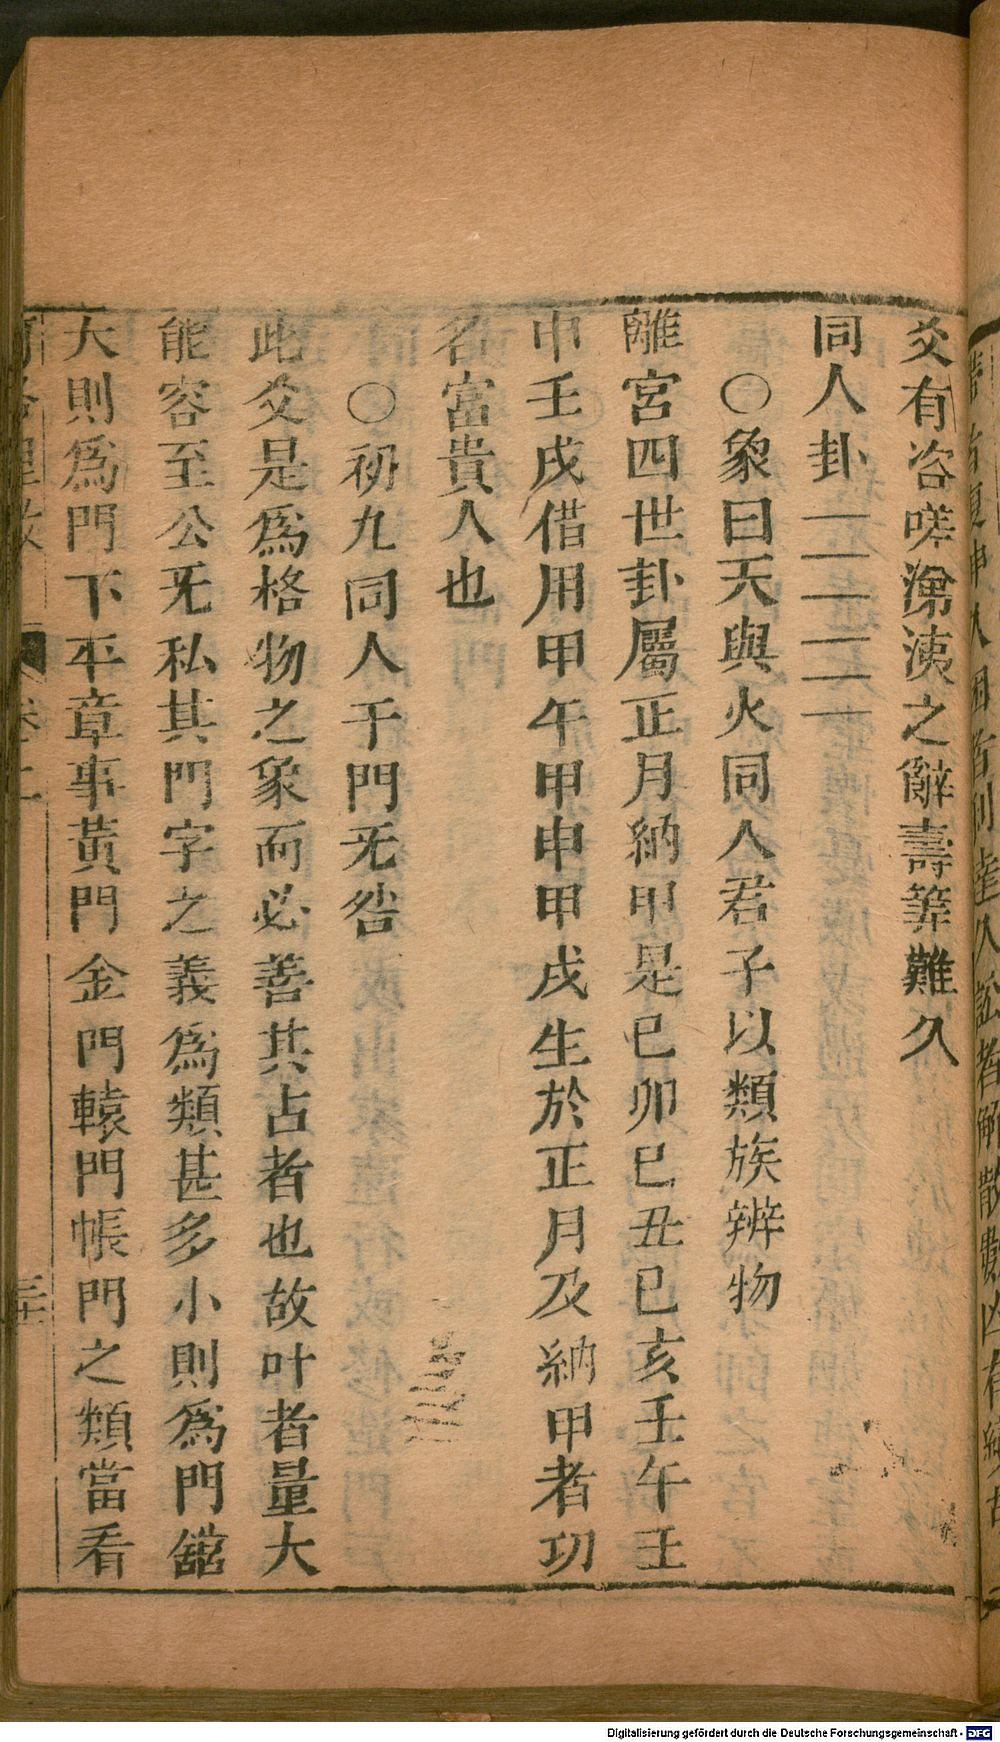 爻有咨嗟涕洟之辭壽筭難久
同人卦
○象曰天與火同人君子以類族辨物
離宮四世卦屬正月納甲是巳卯巳丑巳亥壬午壬
申壬戌借用甲午甲申甲戌生於正月及納甲者功
名富貴人也
○初九同人于門无咎
此爻是爲格物之象而必善其占者也故叶者量大
能容至公无私其門字之義爲類甚多小則爲門舘
大則爲門下平章事黃門金門轅門帳門之類當看
卷二
三十
Digitalisierung gefördert durch die Deutsche Forschungsgemeinschaft - DFG